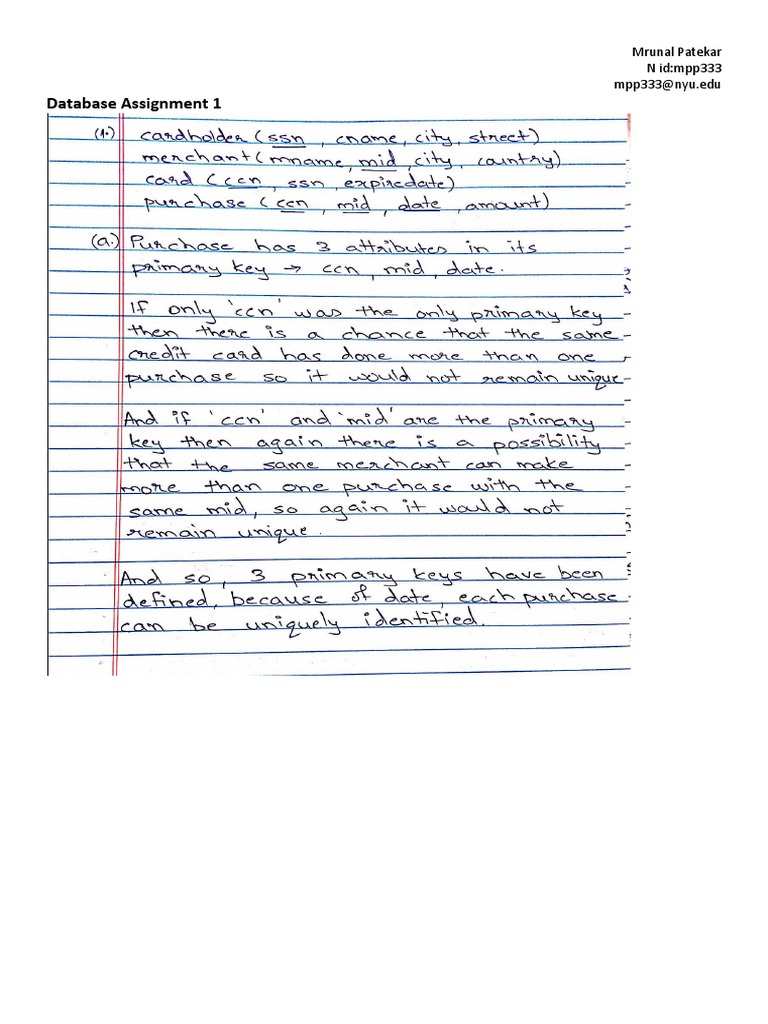 Mrunal Patekar
N id:mpp333
mpp333@nyu.edu
Database Assignment 1
(1.) cardholder (ssn, cname, city, street)
merchant (mname, mid, city, country)
card (ccn, ssn, expiredate)
purchase (ccn, mid, date, amount)
(a.) Purchase has 3 attributes in its
primary key → ccn, mid, date.
If only 'ccn' was the only primary key
then there is a chance that the same
credit card has done more than one
purchase so it would not remain unique
And if 'ccn' and 'mid' are the primary
key then again there is a possibility
that the same merchant can make
more than one purchase with the
same mid, so again it would not
remain unique.
And so, 3 primary keys have been
defined, because of date, each purchase
can be uniquely identified.